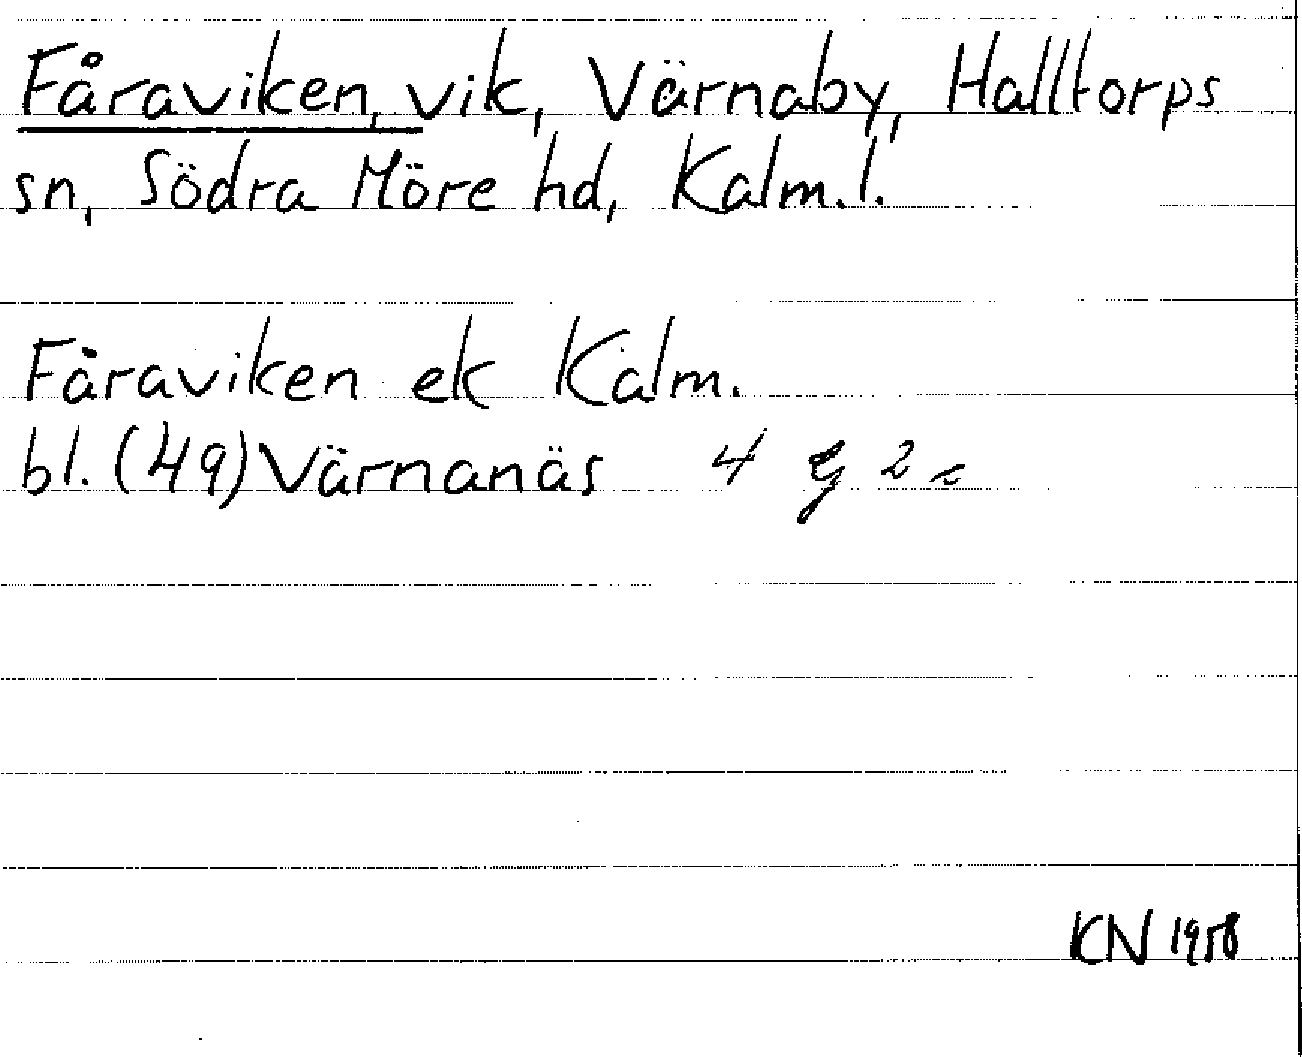 Fåraviken, vik, Värnaby, Halltorps
sn, Södra Möre hd, Kalm.l.
Fåraviken ek Kalm.
bl. (49) Värnanäs 4 g 2 c
KN 1958